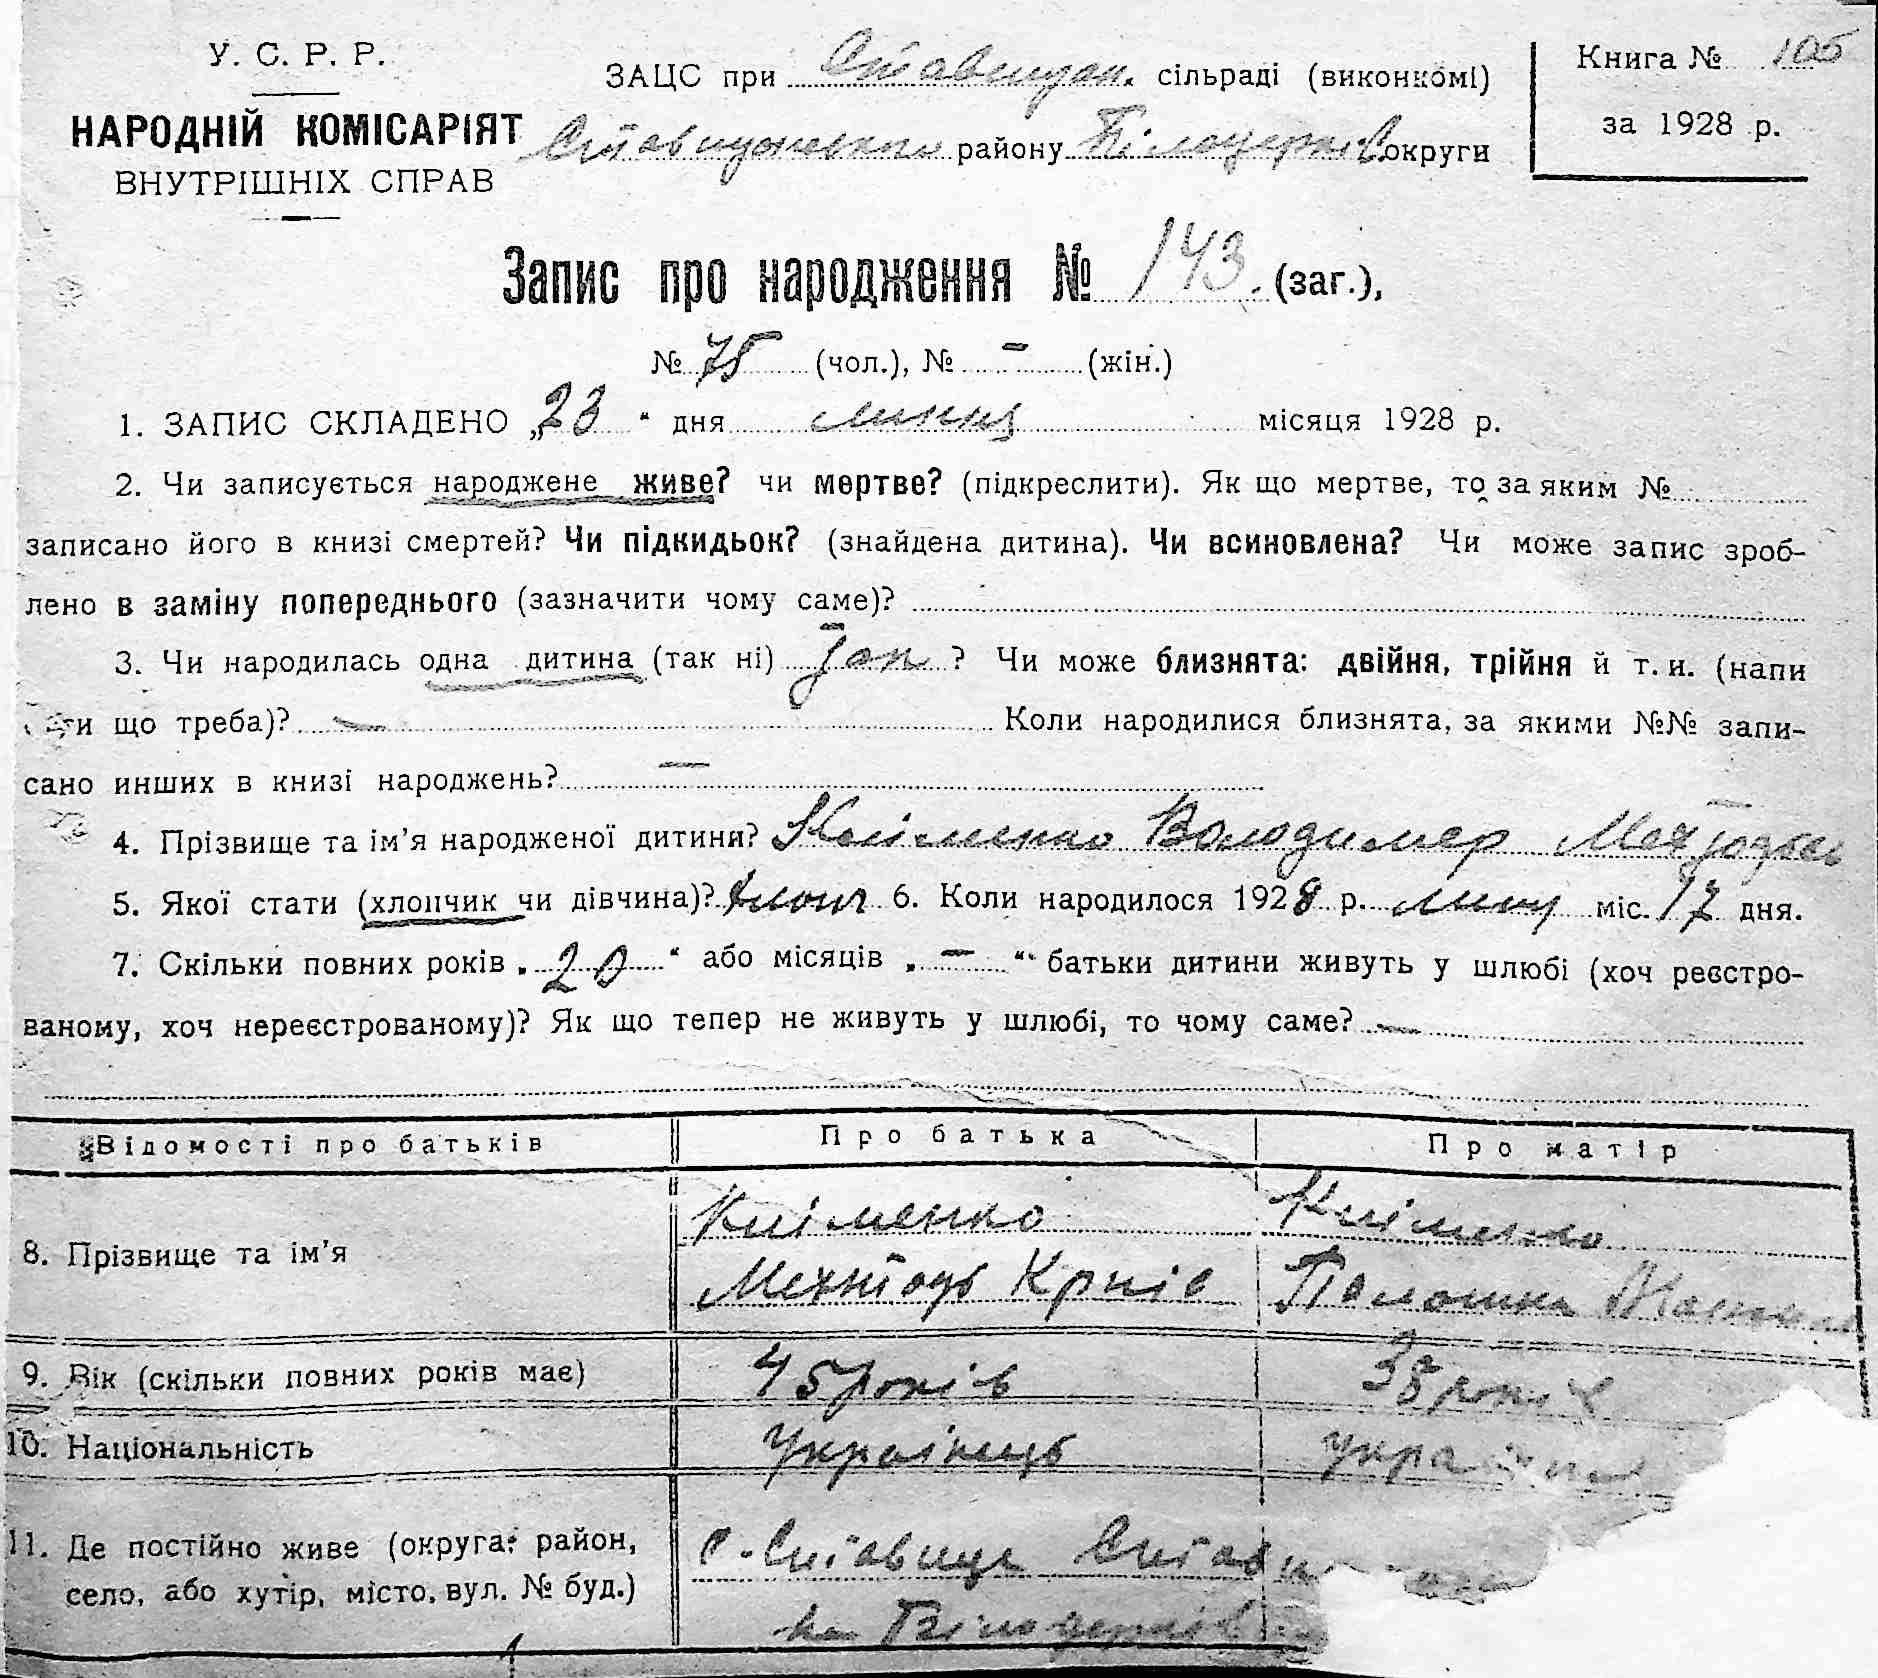 У. С. Р. Р.
НАРОДНІЙ КОМІСАРІЯТ
ВНУТРІШНІХ СПРАВ
ЗАЦС при Ставищан. сільраді (виконкомі)
Ставищанського району Білоцерків округи
Книга № 105
за 1928 р.
Запис про народження № 143. (заг.),
№ 75 (чол.), № - (жін.)
1. ЗАПИС СКЛАДЕНО „23" дня липня місяця 1928 р.
2. Чи записується народжене живе? чи мертве? (підкреслити). Як що мертве, то за яким №
записано його в книзі смертей? Чи підкидьок? (знайдена дитина). Чи всиновлена? Чи може запис зроб-
лено в заміну попереднього (зазначити чому саме)?
3. Чи народилась одна дитина (так ні) так ? Чи може близнята: двійня, трійня й т. и. (напи
ти що треба)? — Коли народилися близнята, за якими №№ запи-
сано инших в книзі народжень? —
4. Прізвище та ім'я народженої дитини? Кліменко Володимер
5. Якої стати (хлопчик чи дівчина)? хлопч 6. Коли народилося 1928 р. липц міс. 17 дня.
7. Скільки повних років „20" або місяців „—" батьки дитини живуть у шлюбі (хоч реєстро-
ваному, хоч нереєстрованому)? Як що тепер не живуть у шлюбі, то чому саме? —
Відомості про батьків Про батька Про матір
8. Прізвище та ім'я Кліменко Кліменко
9. Вік (скільки повних років має) 45 років 38 років
10. Національність українець україн
11. Де постійно живе (округа, район, с. Ставище
село, або хутір, місто, вул. № буд.) Білоцерків